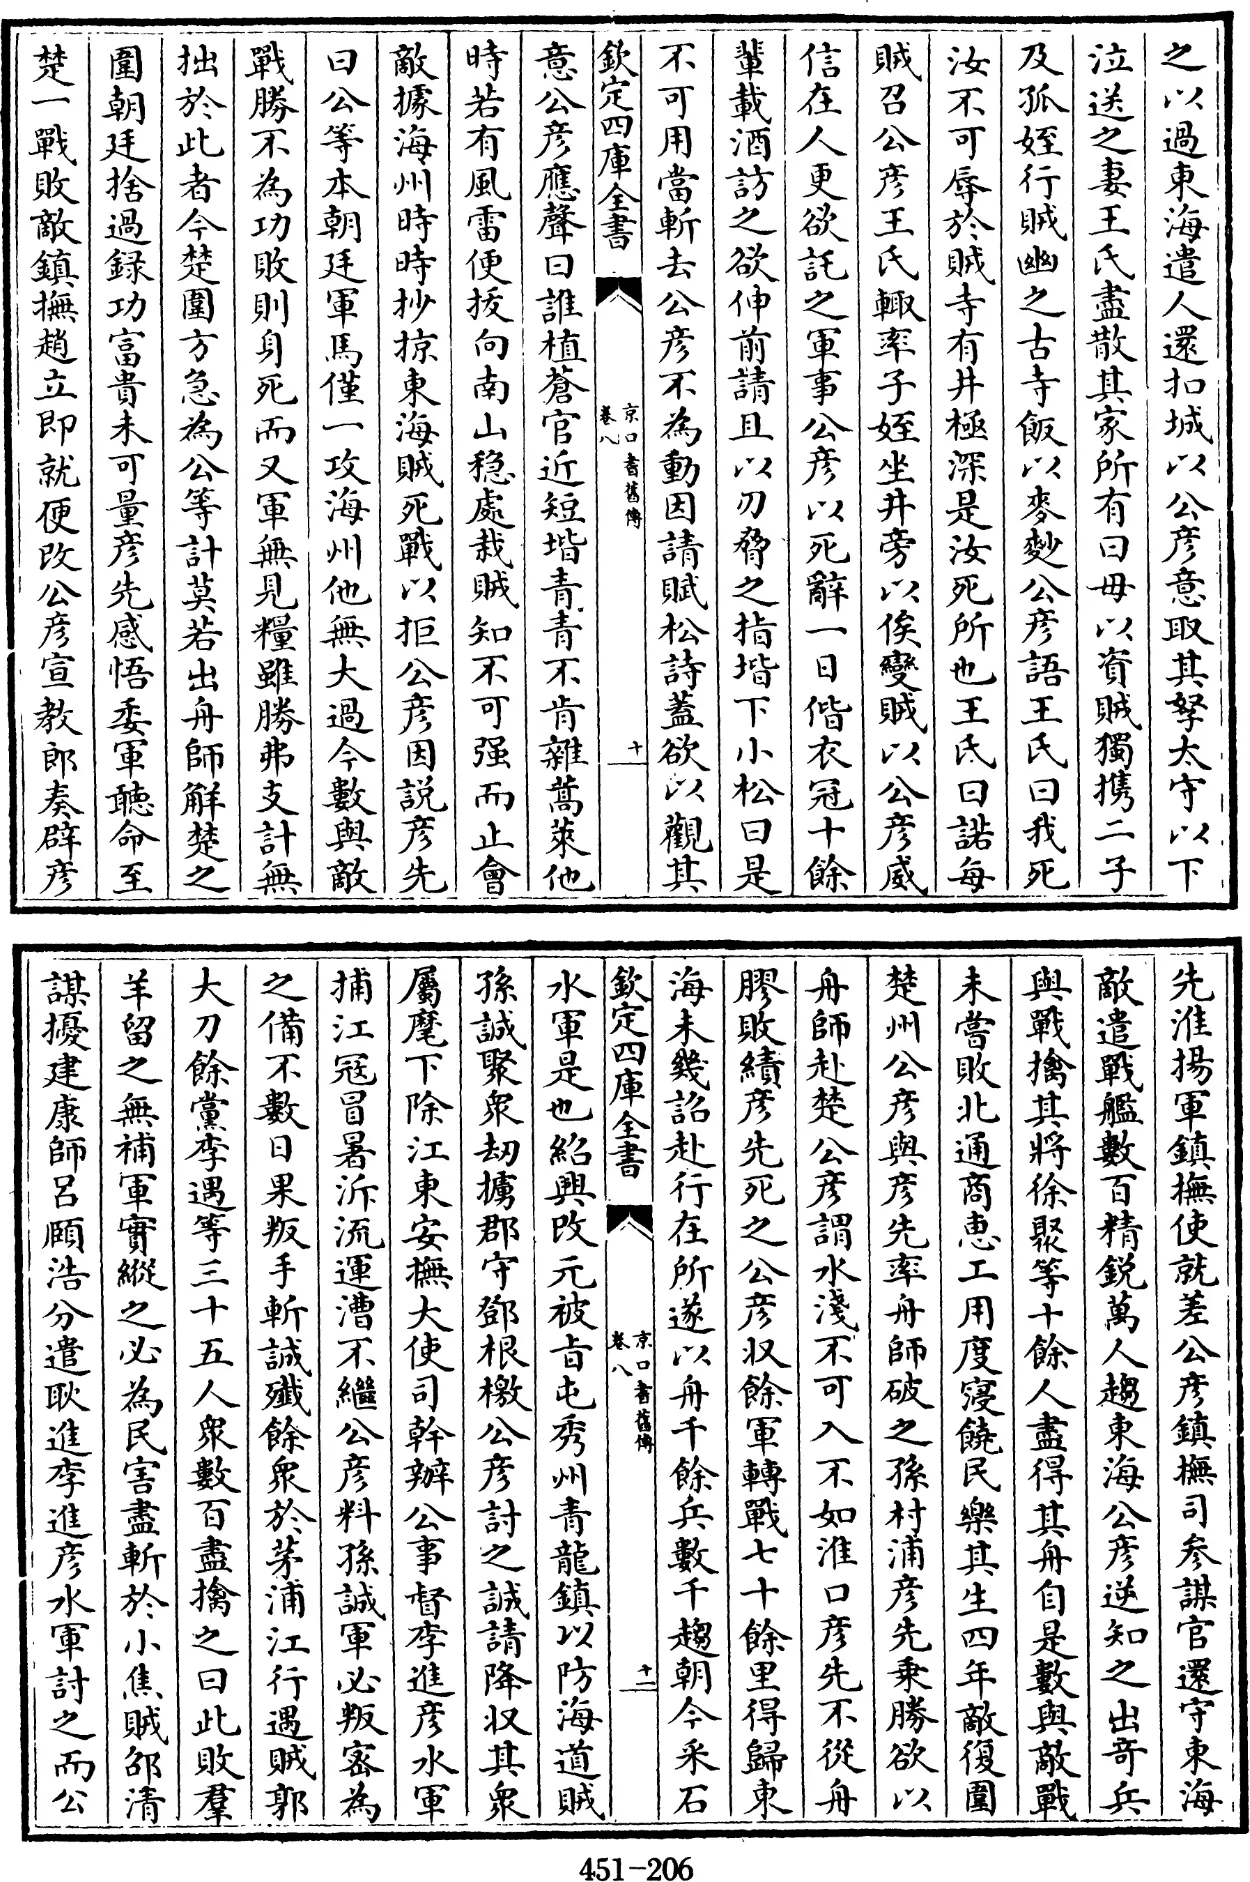 之以過東海遣人還扣城以公彦意取其孥太守以下
泣送之妻王氏盡散其家所有曰毋以資賊獨攜二子
及孤姪行賊幽之古寺飯以麥麨公彦語王氏曰我死
汝不可辱於賊寺有井極深是汝死所也王氏曰諾每
賊召公彦王氏輙率子姪坐井旁以俟變賊以公彦威
信在人更欲託之軍事公彦以死辭一日偕衣冠十餘
輩載酒訪之欲伸前請且以刃脅之指堦下小松曰是
不可用當斬去公彦不為動因請賦松詩蓋欲以觀其
欽定四庫全書
京口耆舊傳
卷八
十
意公彦應聲曰誰植蒼官近短堦青青不肯雜蒿萊他
時若有風雷便拔向南山穏處栽賊知不可强而止會
敵據海州時時抄掠東海賊死戰以拒公彦因說彦先
曰公等本朝廷軍馬僅一攻海州他無大過今數與敵
戰勝不為功敗則身死而又軍無見糧雖勝弗支計無
拙於此者今楚圍方急為公等計莫若出舟師解楚之
圍朝廷捨過録功富貴未可量彦先感悟委軍聽命至
楚一戰敗敵鎮撫趙立即就便改公彦宣教郎奏辟彦
先淮揚軍鎮撫使就差公彦鎮撫司參謀官還守東海
敵遣戰艦數百精鋭萬人趨東海公彦逆知之出奇兵
與戰擒其將徐聚等十餘人盡得其舟自是數與敵戰
未嘗敗北通商惠工用度寖饒民樂其生四年敵復圍
楚州公彦與彦先率舟師破之孫村浦彦先乘勝欲以
舟師赴楚公彦謂水淺不可入不如淮口彦先不從舟
膠敗績彦先死之公彦收餘軍轉戰七十餘里得歸東
海未幾詔赴行在所遂以舟千餘兵數千趨朝今釆石
欽定四庫全書
京口耆舊傳
卷八
十一
水軍是也紹興改元被旨屯秀州青龍鎮以防海道賊
孫誠聚衆刼擄郡守鄧根檄公彦討之誠請降收其衆
屬麾下除江東安撫大使司幹辦公事督李進彦水軍
捕江冦冒暑泝流運漕不繼公彦料孫誠軍必叛宻為
之備不數日果叛手斬誠殲餘衆於茅浦江行遇賊郭
大刀餘黨李遇等三十五人衆數百盡擒之曰此敗羣
羊留之無補軍實縱之必為民害盡斬於小焦賊邵清
謀擾建康師呂頤浩分遣耿進李進彦水軍討之而公
451-206